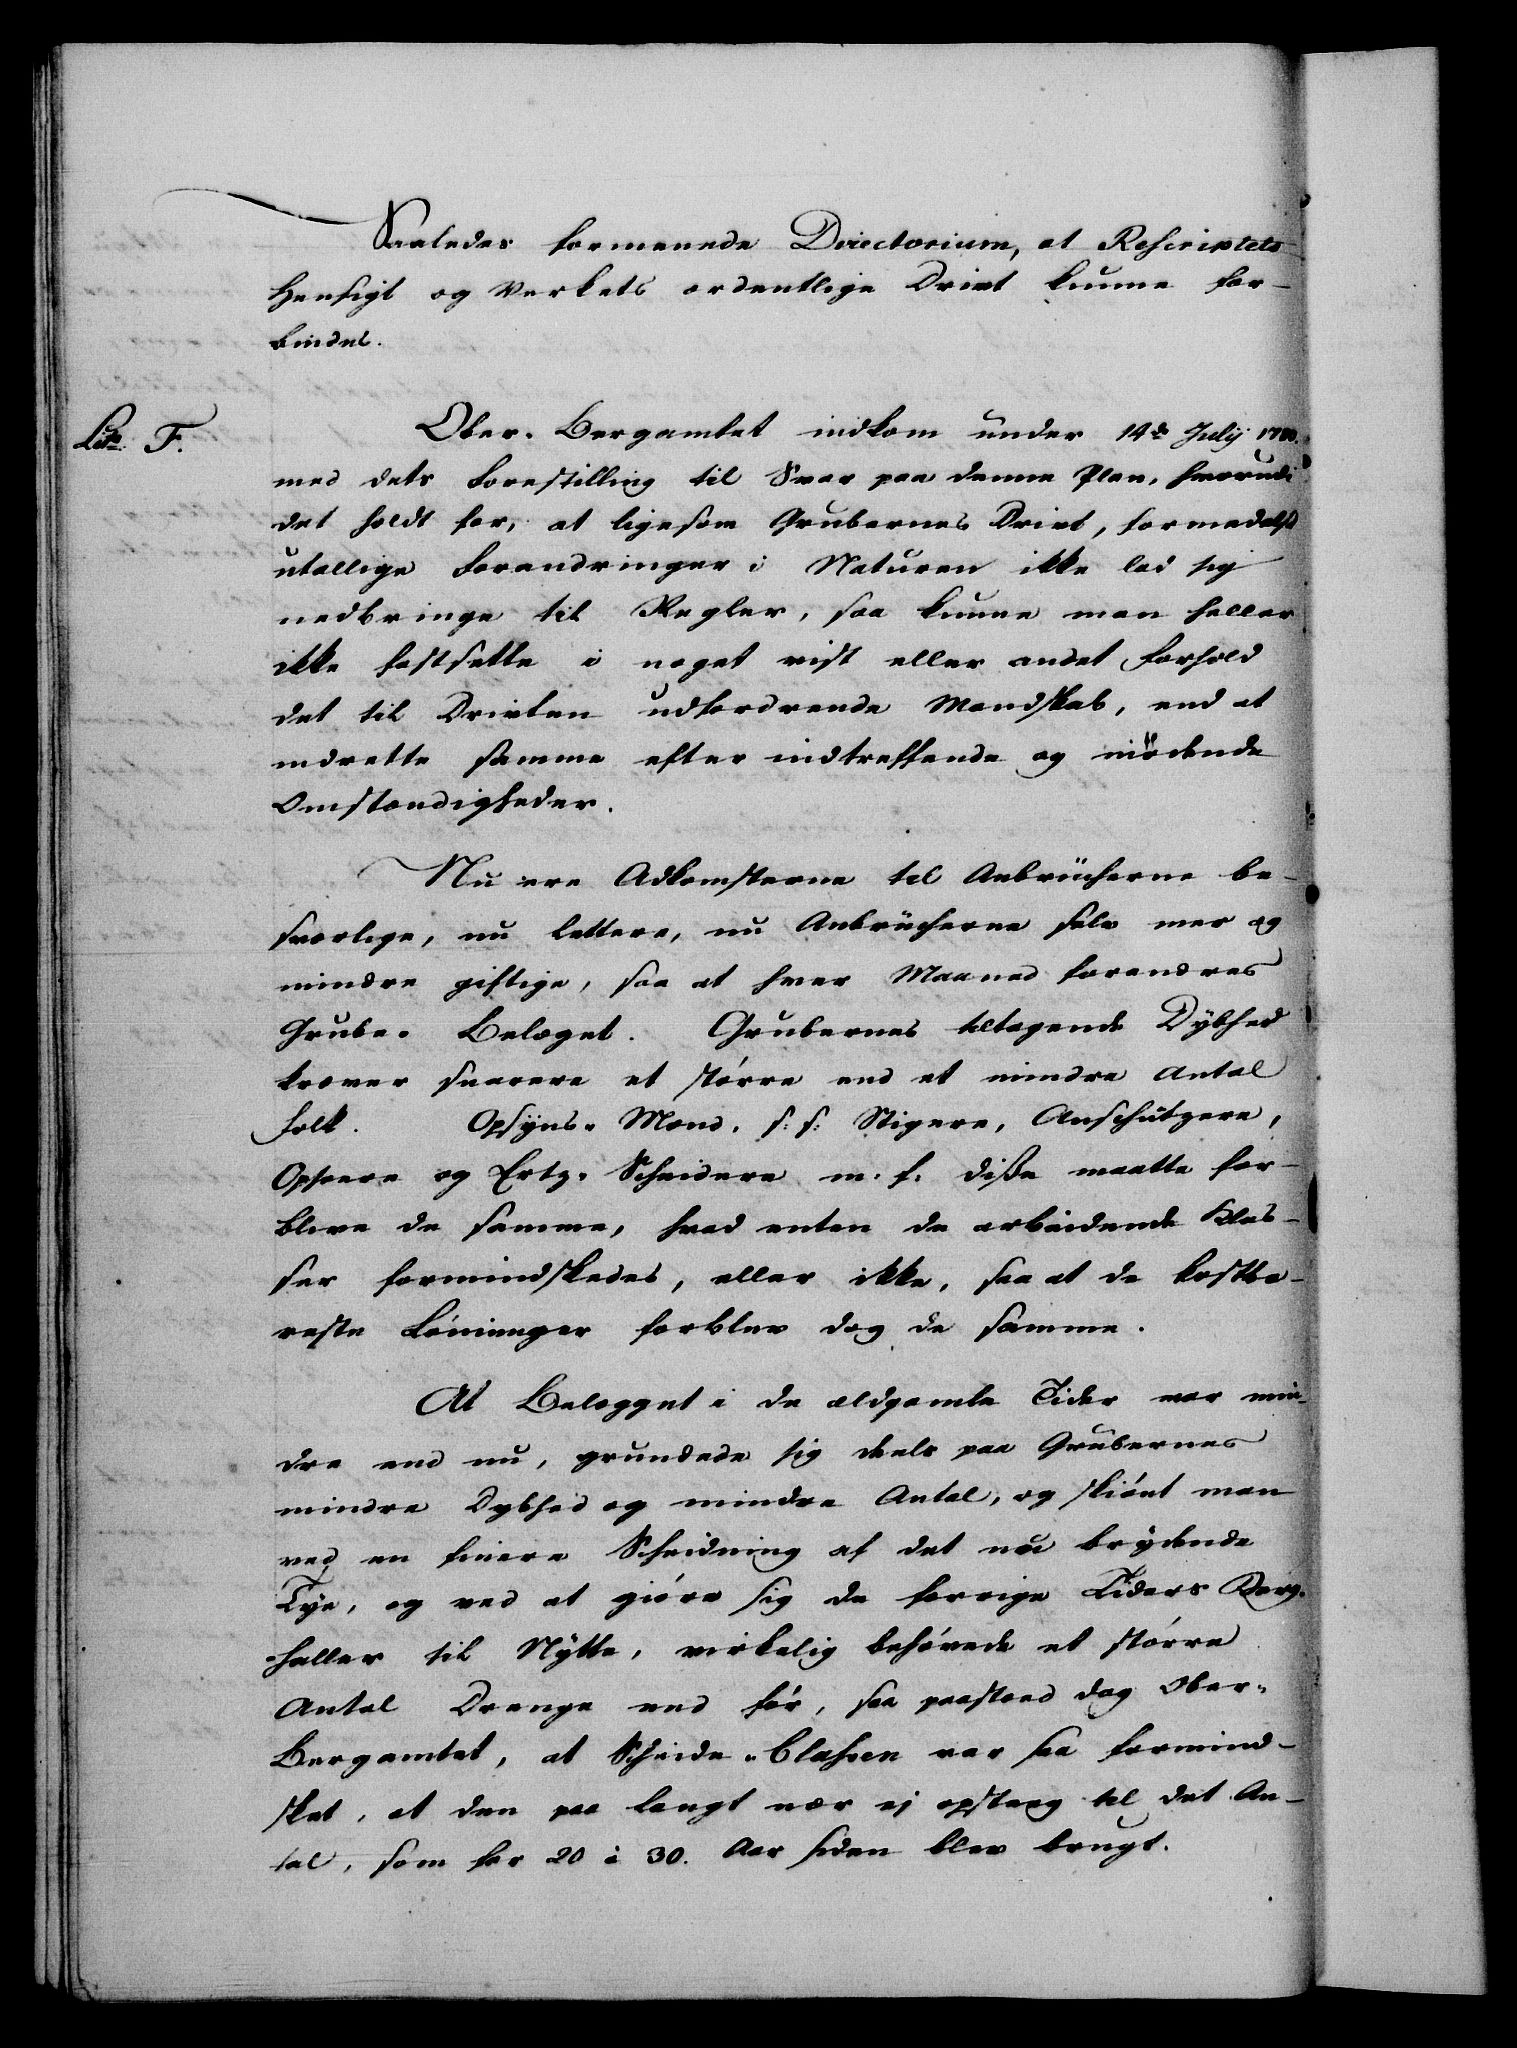 Saaledes formenede Directorium, at Rescriptets
Hensigt og Verkets ordentlige Drivt kunne for-
bindes.
Litr. F.
Ober-Bergamtet indkom under 14de July 1780.
med dets Forestilling til Svar paa denne Plan, hvorudi
det holdt for, at ligesom Grubernes Drivt, formedelst
utallige Forandringer i Naturen ikke lod sig
nedbringe til Regler, saa kunne man heller
ikke fastsette i noget vist eller andet Forhold
det til Drivten udfordrende Mandskab, end at
indrette samme efter indtreffende og mødende
Omstændigheder.
Nu ere Adkomsterne til Anbrücherne be-
sværlige, nu lettere, nu Anbrücherne selv mer og
mindre giftige, saa at hver Maaned forandres
Grube-Belæget. Grubernes tiltagende Dybhed
kræver snarere et større end et mindre Antal
Folk. Opsyns-Mænd, s: s: Stigere, Anschützere,
Opseere og Ertz-Scheidere m. f. disse maatte for-
blive de samme, hvad enten de arbeidende Klas-
ser formindskedes, eller ikke, saa at de kostba-
reste Lønninger forblev dog de samme.
At Belægget i de ældgamle Tider var min-
dre end nu, grundede sig deels paa Grubernes
mindre Dybhed og mindre Antal, og skiønt man
ved en finere Scheidning af det nu brydende
Tye, og ved at giøre sig de forrige Tiders Berg-
haller til Nytte, virkelig behøvede et større
Antal Drenge end før, saa paastaaed dog Ober-
Bergamtet, at Scheide-Classen var saa formind-
sket, at den paa langt nær ej opsteeg til det An-
tal, som for 20 à 30. Aar siden blev brugt.